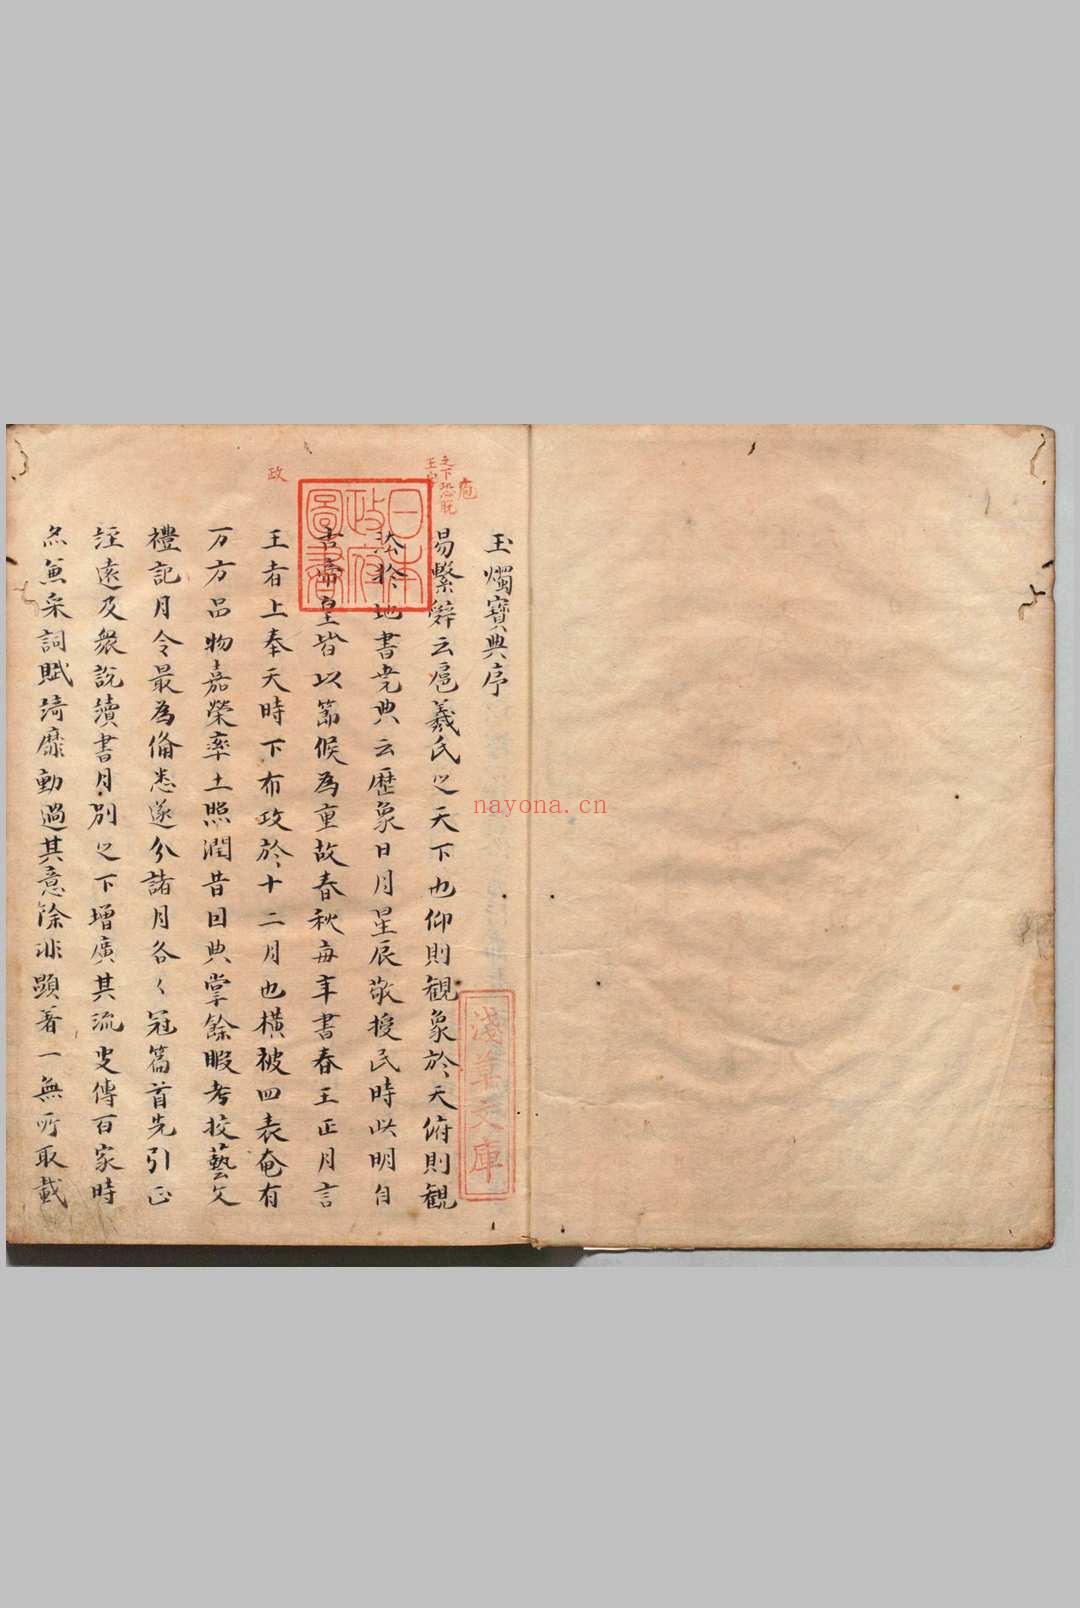 玉燭寶典序
易繫辭云扈羲氏之天下也仰則觀象於天俯則觀
法於地書堯典云歷象日月星辰敬授民時此明自
古帝皇皆以節候為重故春秋每年書春王正月言
王者上奉天時下布政於十二月也橫被四表奄有
万方品物嘉榮率土照潤昔因典掌餘暇考挍藝文
禮記月令最為俻悉遂分諸月各〻冠篇首先引正
經遠及衆說續書月別之下增廣其流史傳百家時
亦兼采詞賦綺靡動過其意除非顯著一無所取載
庖
之下恐脫
王字
政
日本
政府
圖書
淺草文庫
nayona.cn